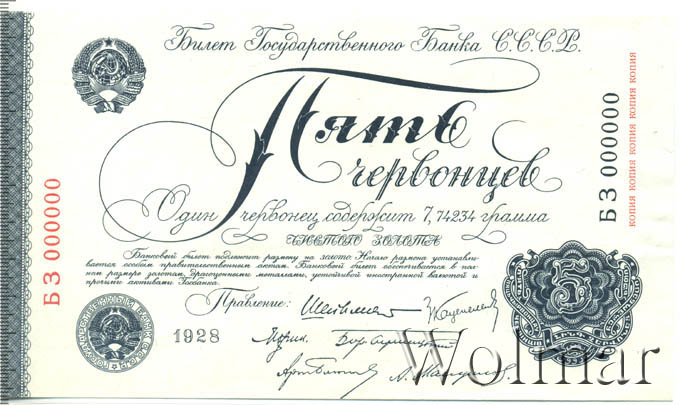 Билет Государственного Банка С.С.С.Р.
Пять
червонцев
Один червонец содержит 7,74234 грамма
чистого золота
Банковый билет подлежит размену на золото. Начало размена устанавли-
вается особым правительственным актом. Банковый билет обеспечивается в пол-
ном размере золотом, драгоценными металлами, устойчивой иностранной валютой и
прочими активами Госбанка.
Правление:
1928
БЗ 000000
БЗ 000000
копия копия копия копия копия
5
Wolmar